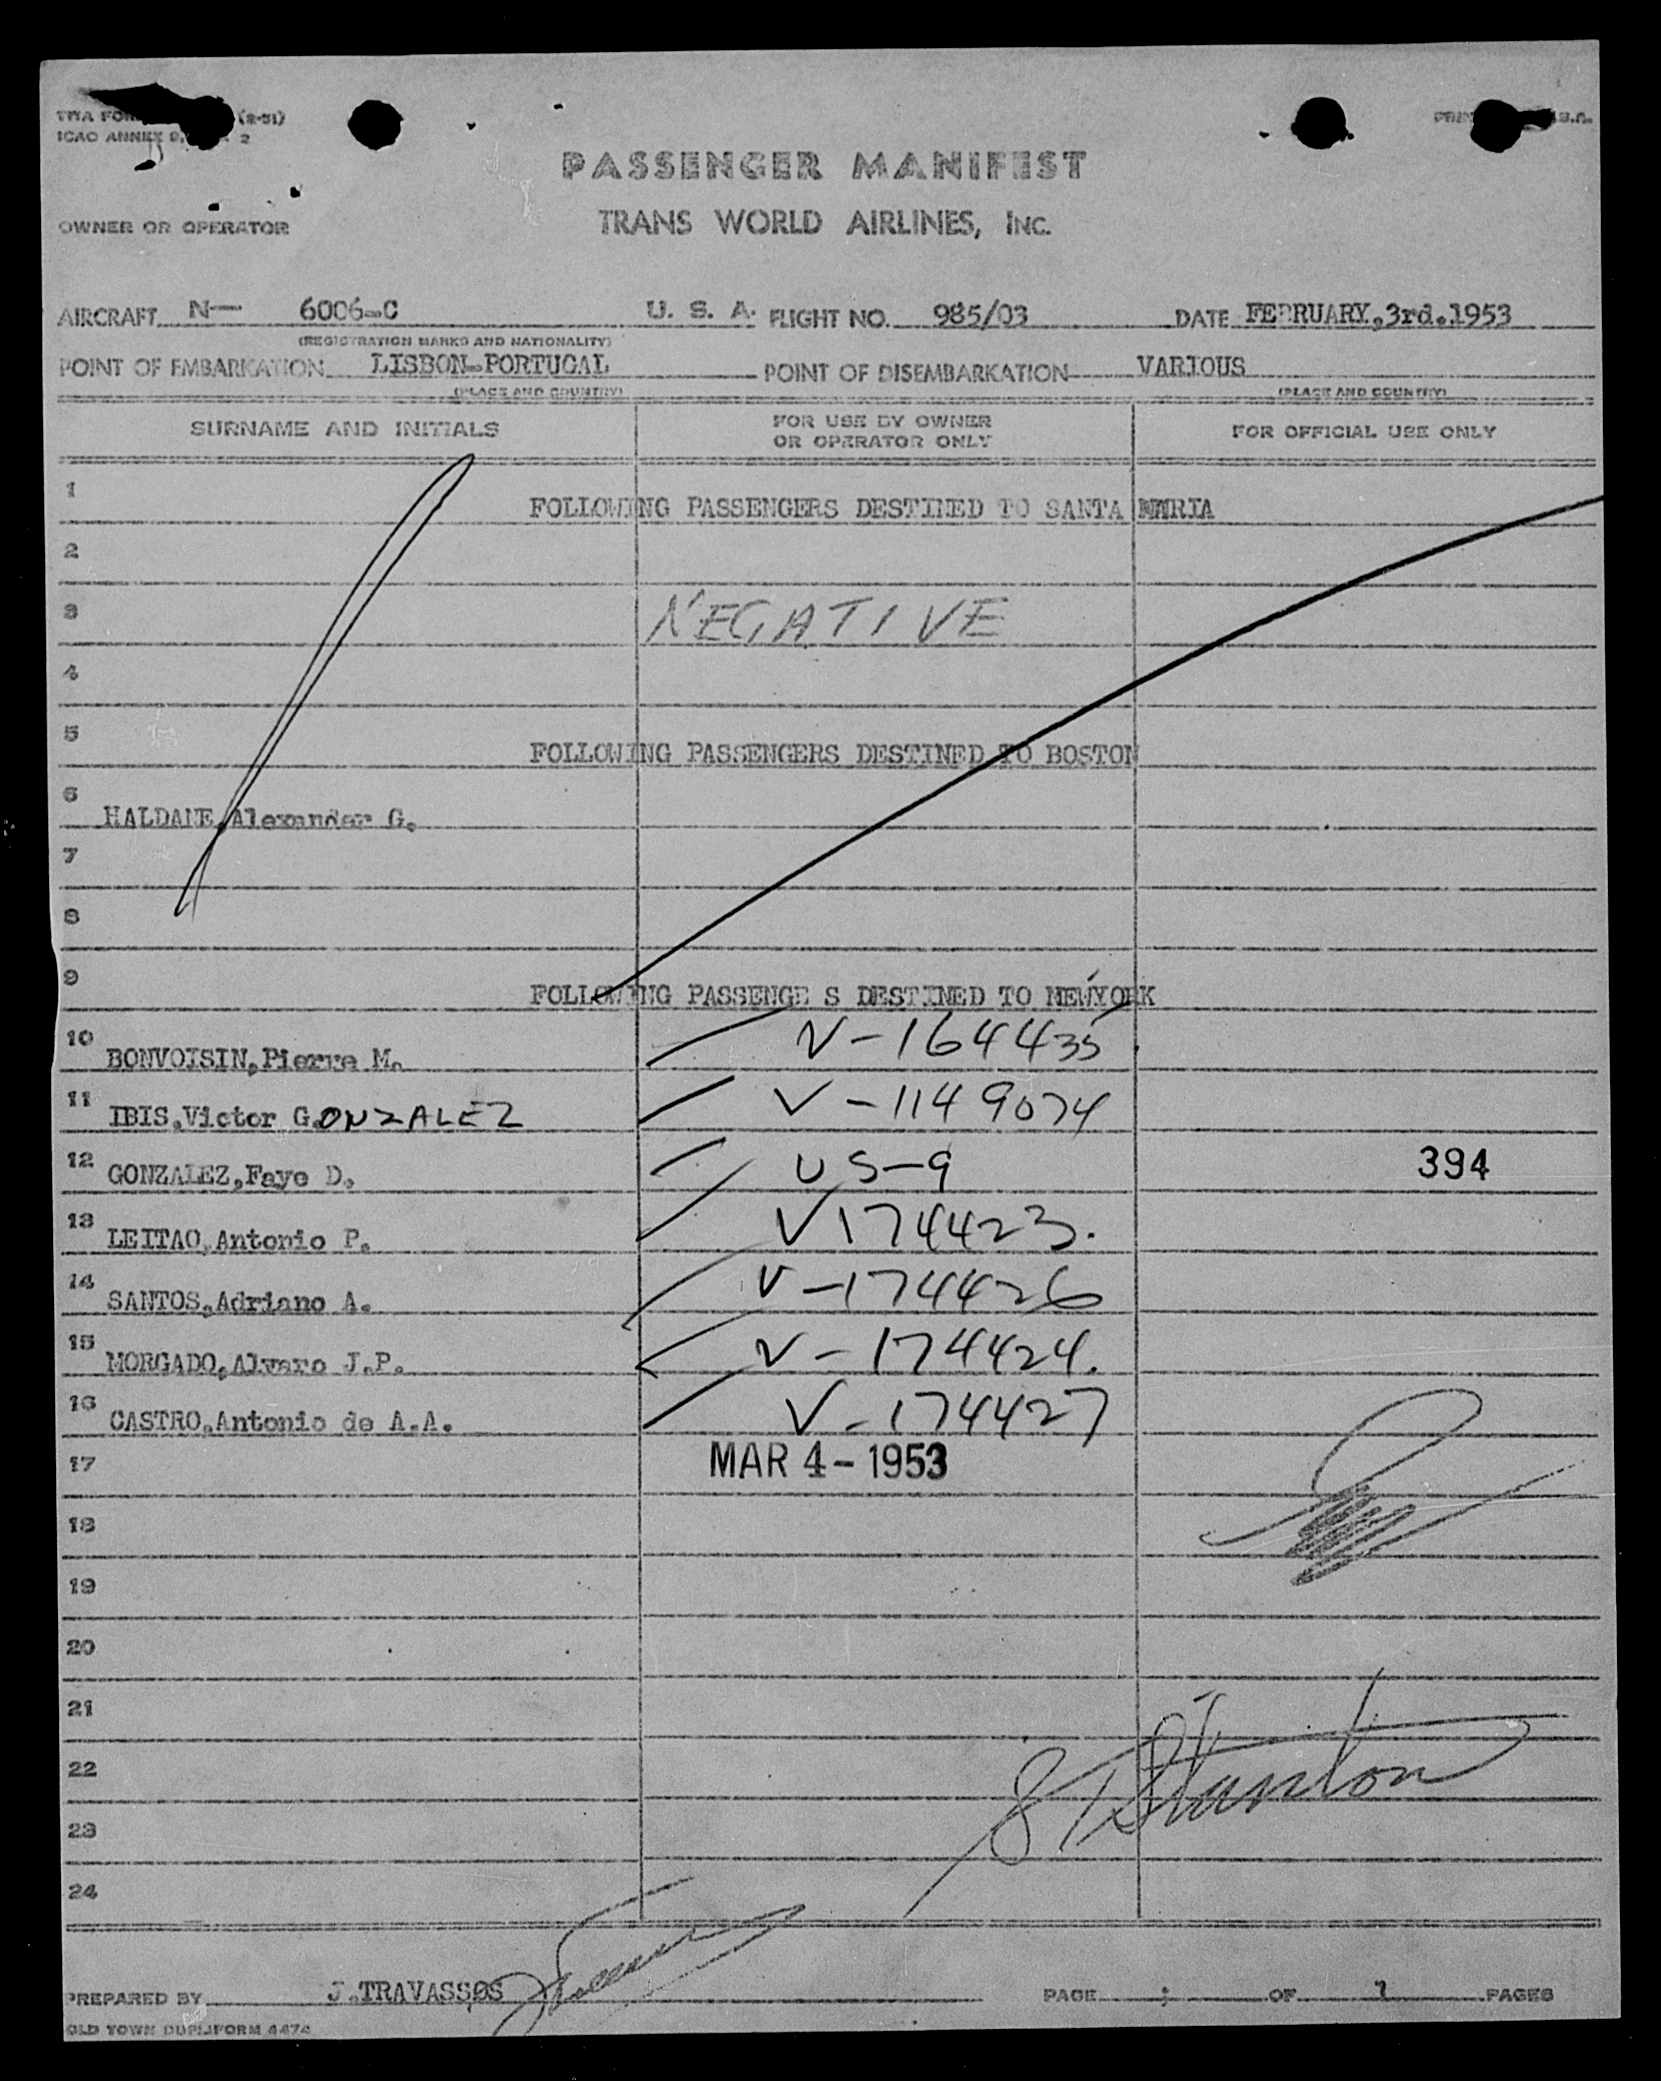 TWA FOR (2-51)
ICAO ANNEX 9, 2
PASSENGER MANIFEST
OWNER OR OPERATOR
TRANS WORLD AIRLINES, INC.
AIRCRAFT N— 6006-C U. S. A. FLIGHT NO. 985/03 DATE FEBRUARY,3rd.1953
(REGISTRATION MARKS AND NATIONALITY)
POINT OF EMBARKATION LISBON-PORTUGAL POINT OF DISEMBARKATION VARIOUS
(PLACE AND COUNTRY) (PLACE AND COUNTRY)
SURNAME AND INITIALS FOR USE BY OWNER OR OPERATOR ONLY FOR OFFICIAL USE ONLY
1 FOLLOWING PASSENGERS DESTINED TO SANTA MARIA
2
3 NEGATIVE
4
5 FOLLOWING PASSENGERS DESTINED TO BOSTON
6 HALDANE,Alexander G.
7
8
9 FOLLOWING PASSENGE S DESTINED TO NEWYORK
10 BONVOISIN,Pierre M. V-164435
11 IBIS,Victor G.ONZALEZ V-1149074
12 GONZALEZ,Faye D. US-9 394
13 LEITAO,Antonio P. V174423.
14 SANTOS,Adriano A. V-174426
15 MORGADO,Alvaro J.P. V-174424.
16 CASTRO,Antonio de A.A. V-174427
17 MAR 4-1953
18
19
20
21
22 Stanton
23
24
PREPARED BY J.TRAVASSOS PAGE OF 1 PAGES
OLD TOWN DUPLIFORM 4474